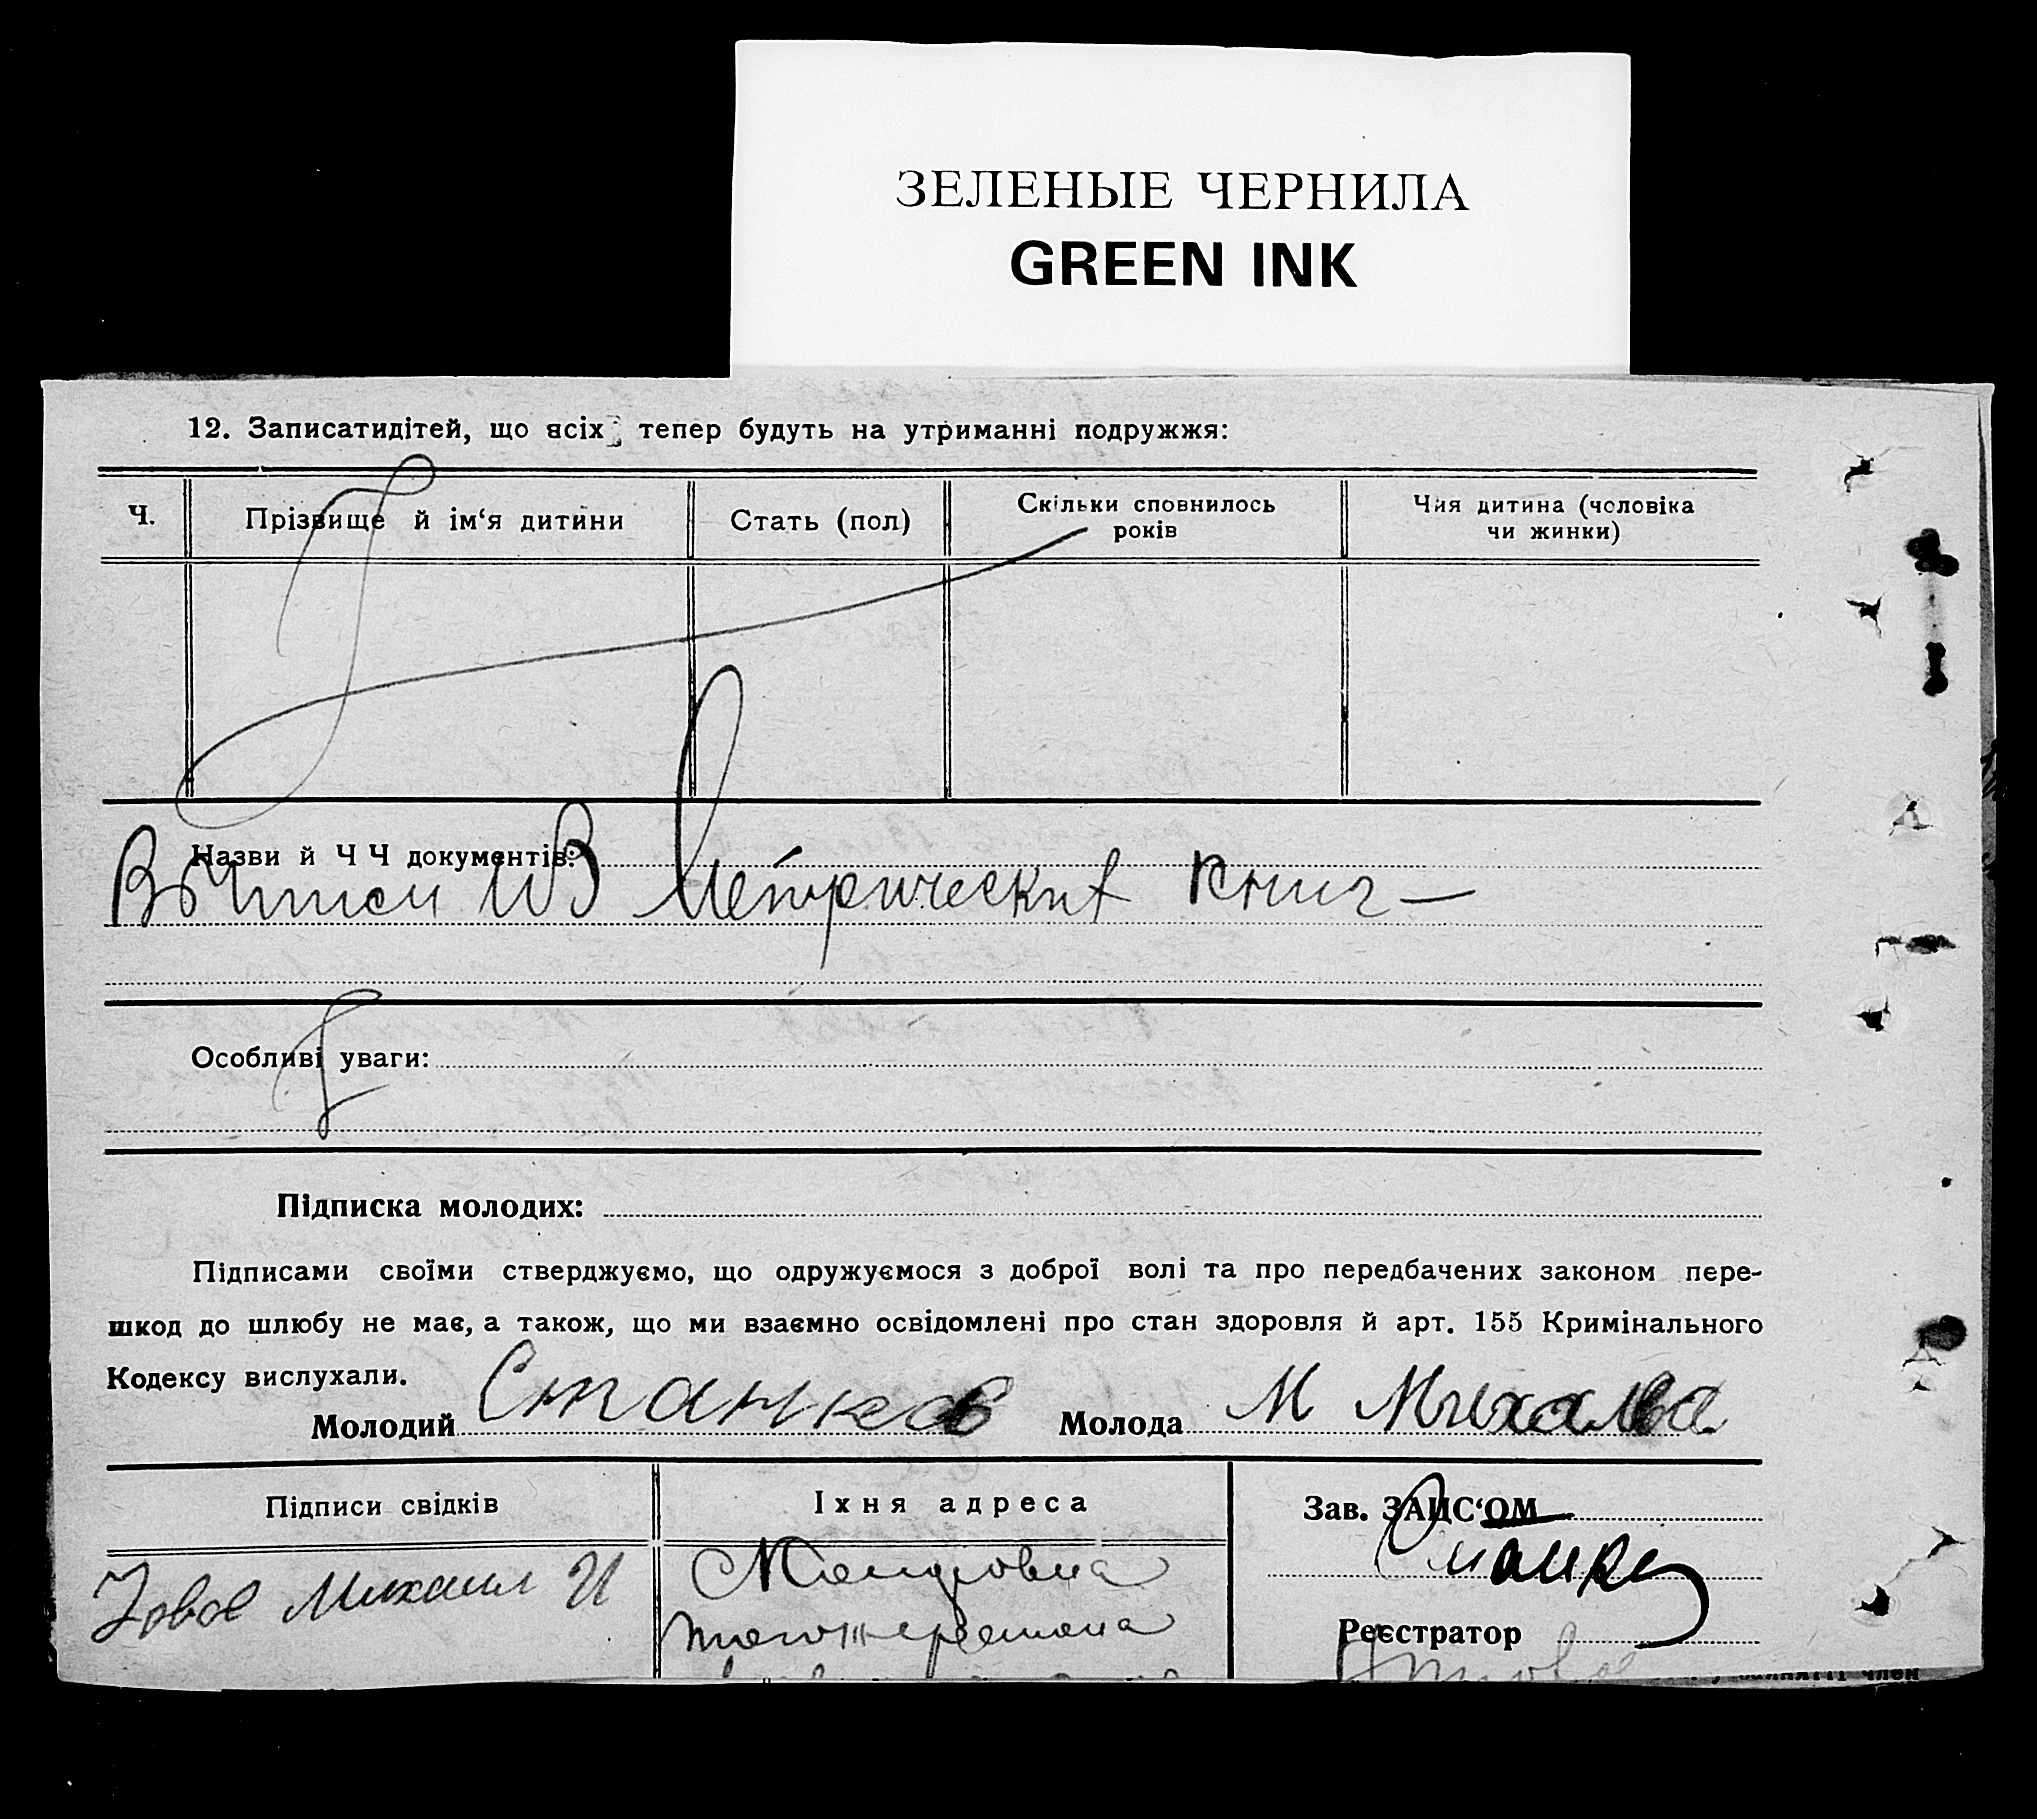 ЗЕЛЕНЫЕ ЧЕРНИЛА
GREEN INK
12. Записатидітей, що всіх тепер будуть на утриманні подружжя:
Ч.
Прізвище й ім‘я дитини
Стать (пол)
Скільки сповнилось
років
Чия дитина (чоловіка
чи жинки)
Назви й Ч Ч документів:
Выписи из Метрических книг —
Особливі уваги:
Підписка молодих:
Підписами своїми стверджуємо, що одружуємося з доброї волі та про передбачених законом пере-
шкод до шлюбу не має, а також, що ми взаємно освідомлені про стан здоровля й арт. 155 Кримінального
Кодексу вислухали.
Молодий Станков Молода М Михалва
Підписи свідків
Їхня адреса
Зав. ЗАЦС‘ОМ
Михаил И
тогож
Реєстратор
член